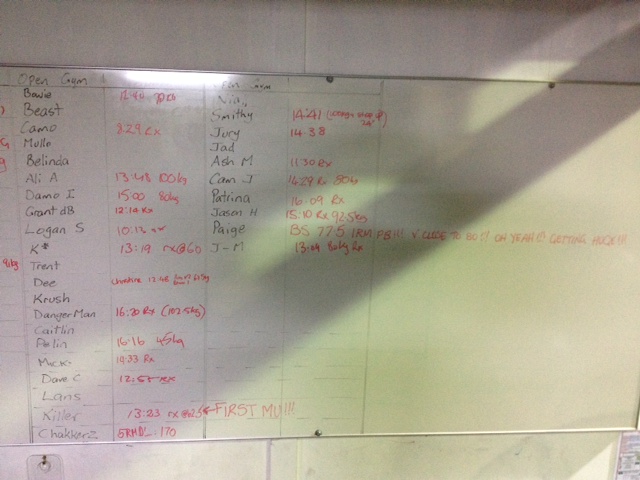 Open Gym
Bowie
Beast
Camo 8.29 Rx
Mullo
Belinda
Ali A 13:48 100kg
Damo I 15:00 80kg
Grant dB 12:14 Rx
Logan S 10:13
K* 13:19 rx@60
Trent
Dee Christine 12:48
Krush
Danger Man 16:20 Rx (102.5kg)
Caitlin
Palin 16:16 45kg
Mick 14:33 Rx
Dave C 12:55 RX
Lans
Killer 13:23 FIRST MU!!!
Chakkerz 5RM DL: 170
Gym
Smithy 14:41
Jury 14:38
Jad
Ash M 11:30 Rx
Cam J 14:29 Rx 80kg
Patrina 16:09 Rx
Jason H 15:10 Rx 92.5kg
Paige BS 77.5 1RM PB!!! CLOSE TO 80!! OH YEAH!!! GETTING HUGE!!!
J-M 13:04 80kg Rx